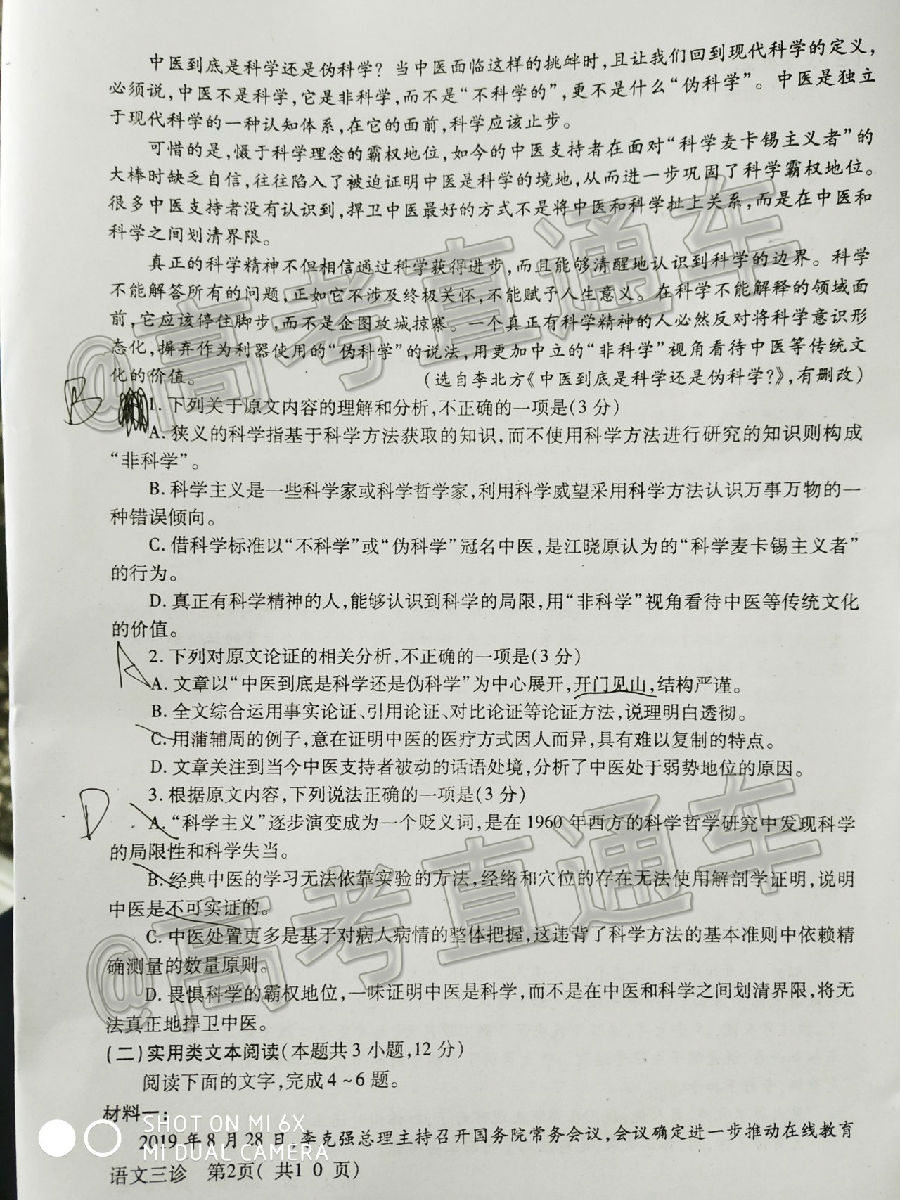 中医到底是科学还是伪科学？当中医面临这样的挑衅时,且让我们回到现代科学的定义,
必须说,中医不是科学,它是非科学,而不是“不科学的”,更不是什么“伪科学”。中医是独立
于现代科学的一种认知体系,在它的面前,科学应该止步。
可惜的是,慑于科学理念的霸权地位,如今的中医支持者在面对“科学麦卡锡主义者”的
大棒时缺乏自信,往往陷入了被迫证明中医是科学的境地,从而进一步巩固了科学霸权地位。
很多中医支持者没有认识到,捍卫中医最好的方式不是将中医和科学扯上关系,而是在中医和
科学之间划清界限。
真正的科学精神不但相信通过科学获得进步,而且能够清醒地认识到科学的边界。科学
不能解答所有的问题,正如它不涉及终极关怀,不能赋予人生意义。在科学不能解释的领域面
前,它应该停住脚步,而不是企图攻城掠寨。一个真正有科学精神的人必然反对将科学意识形
态化,摒弃作为利器使用的“伪科学”的说法,用更加中立的“非科学”视角看待中医等传统文
化的价值。 (选自李北方《中医到底是科学还是伪科学?》,有删改)
B 1. 下列关于原文内容的理解和分析,不正确的一项是(3分)
A. 狭义的科学指基于科学方法获取的知识,而不使用科学方法进行研究的知识则构成
“非科学”。
B. 科学主义是一些科学家或科学哲学家,利用科学威望采用科学方法认识万事万物的一
种错误倾向。
C. 借科学标准以“不科学”或“伪科学”冠名中医,是江晓原认为的“科学麦卡锡主义者”
的行为。
D. 真正有科学精神的人,能够认识到科学的局限,用“非科学”视角看待中医等传统文化
的价值。
A 2. 下列对原文论证的相关分析,不正确的一项是(3分)
A. 文章以“中医到底是科学还是伪科学”为中心展开,开门见山,结构严谨。
B. 全文综合运用事实论证、引用论证、对比论证等论证方法,说理明白透彻。
C. 用蒲辅周的例子,意在证明中医的医疗方式因人而异,具有难以复制的特点。
D. 文章关注到当今中医支持者被动的话语处境,分析了中医处于弱势地位的原因。
D 3. 根据原文内容,下列说法正确的一项是(3分)
A. “科学主义”逐步演变成为一个贬义词,是在1960年西方的科学哲学研究中发现科学
的局限性和科学失当。
B. 经典中医的学习无法依靠实验的方法,经络和穴位的存在无法使用解剖学证明,说明
中医是不可实证的。
C. 中医处置更多是基于对病人病情的整体把握,这违背了科学方法的基本准则中依赖精
确测量的数量原则。
D. 畏惧科学的霸权地位,一味证明中医是科学,而不是在中医和科学之间划清界限,将无
法真正地捍卫中医。
(二)实用类文本阅读(本题共3小题,12分)
阅读下面的文字,完成4~6题。
材料一:
2019年8月28日,李克强总理主持召开国务院常务会议,会议确定进一步推动在线教育
语文三诊 第2页(共10页)
@高考直通车
@高考直通车
SHOT ON MI 6X
MI DUAL CAMERA